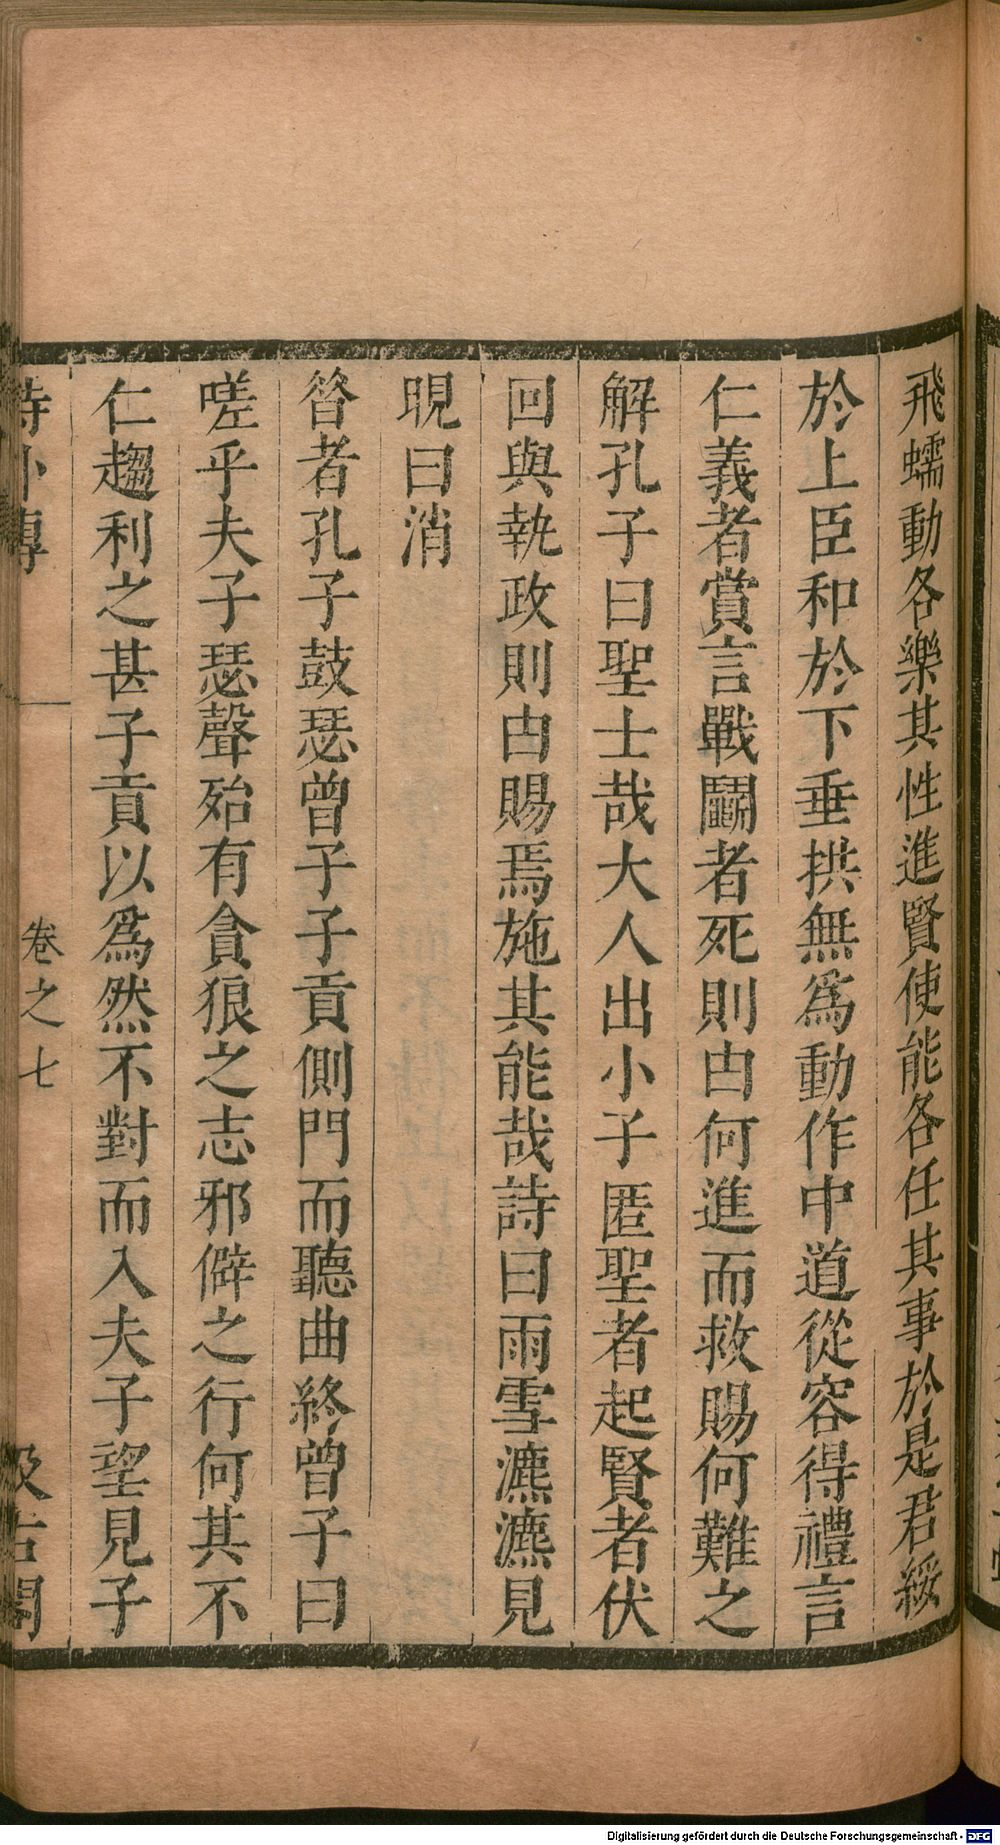 飛蠕動各樂其性進賢使能各任其事於是君綏
於上臣和於下垂拱無爲動作中道從容得禮言
仁義者賞言戰鬭者死則由何進而救賜何難之
解孔子曰聖士哉大人出小子匿聖者起賢者伏
回與執政則由賜焉施其能哉詩曰雨雪瀌瀌見
晛曰消
昝者孔子鼓瑟曾子子貢側門而聽曲終曾子曰
嗟乎夫子瑟聲殆有貪狼之志邪僻之行何其不
仁趨利之甚子貢以爲然不對而入夫子望見子
詩外傳 卷之七 汲古閣
Digitalisierung gefördert durch die Deutsche Forschungsgemeinschaft - DFG